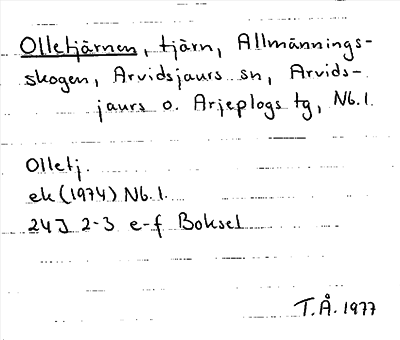 Olletjärnen, tjärn, Allmännings-
skogen, Arvidsjaurs sn, Arvids-
jaurs o. Arjeplogs tg, Nb. l.
Olletj.
ek (1974) Nb. l.
24J 2-3 e-f Boksel
T.Å. 1977